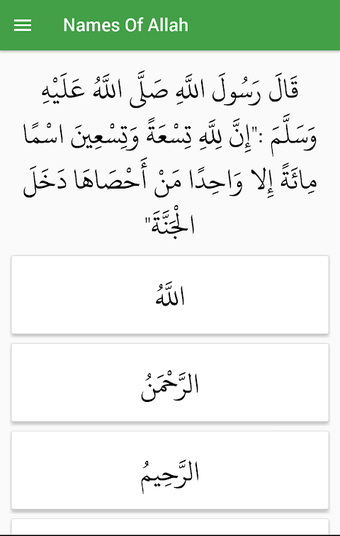 Names Of Allah
قَالَ رَسُولَ اللَّهِ صَلَّى اللَّهُ عَلَيْهِ
وَسَلَّمَ :"إِنَّ لِلَّهِ تِسْعَةً وَتِسْعِينَ اسْمًا
مِائَةً إِلا وَاحِدًا مَنْ أَحْصَاهَا دَخَلَ
الْجَنَّةَ"
اللَّهُ
الرَّحْمَنُ
الرَّحِيمُ